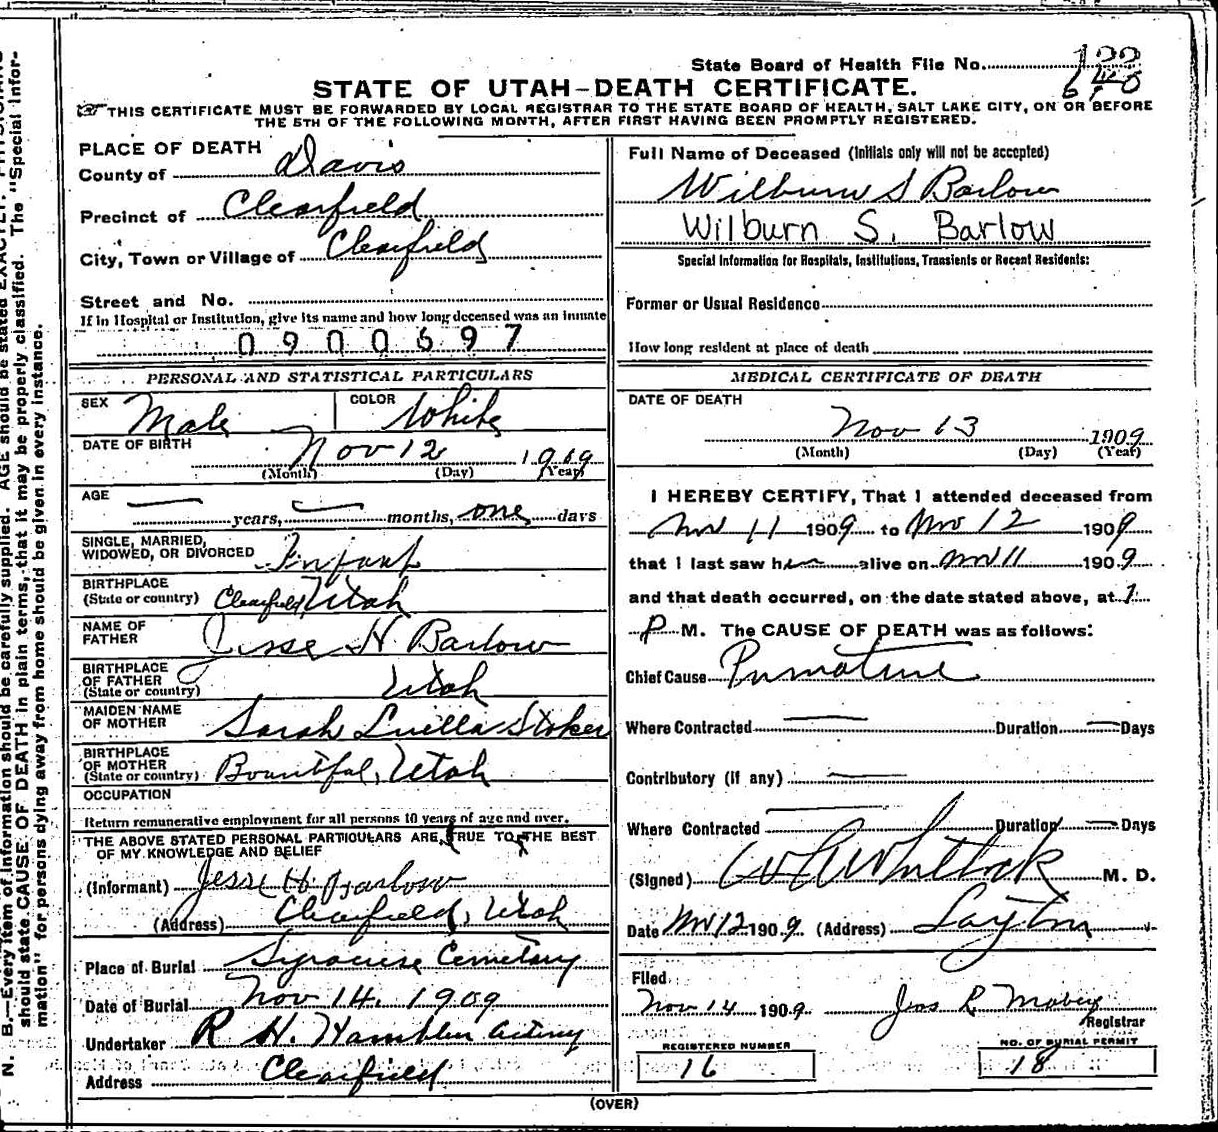 State Board of Health File No. 122
STATE OF UTAH-DEATH CERTIFICATE.
THIS CERTIFICATE MUST BE FORWARDED BY LOCAL REGISTRAR TO THE STATE BOARD OF HEALTH, SALT LAKE CITY, ON OR BEFORE
THE 5TH OF THE FOLLOWING MONTH, AFTER FIRST HAVING BEEN PROMPTLY REGISTERED.
PLACE OF DEATH
County of Davis
Precinct of Clearfield
City, Town or Village of Clearfield
Street and No.
If in Hospital or Institution, give its name and how long deceased was an inmate
0900697
PERSONAL AND STATISTICAL PARTICULARS
SEX Male COLOR White
DATE OF BIRTH Nov 12 1909
(Month) (Day) (Year)
AGE
years, months, one days
SINGLE, MARRIED,
WIDOWED, OR DIVORCED Infant
BIRTHPLACE
(State or country) Clearfield Utah
NAME OF
FATHER Jesse H Barlow
BIRTHPLACE
OF FATHER
(State or country) Utah
MAIDEN NAME
OF MOTHER Sarah Luella Stoker
BIRTHPLACE
OF MOTHER
(State or country) Bountiful, Utah
OCCUPATION
Return remunerative employment for all persons 10 years of age and over.
THE ABOVE STATED PERSONAL PARTICULARS ARE TRUE TO THE BEST
OF MY KNOWLEDGE AND BELIEF
(Informant) Jesse H Barlow
(Address) Clearfield, Utah
Place of Burial Syracuse Cemetary
Date of Burial Nov 14. 1909
Undertaker R H. Hamblin
Address Clearfield
Full Name of Deceased (Initials only will not be accepted)
Wilburn S Barlow
Wilburn S. Barlow
Special Information for Hospitals, Institutions, Transients or Recent Residents:
Former or Usual Residence
How long resident at place of death
MEDICAL CERTIFICATE OF DEATH
DATE OF DEATH
Nov 13 1909
(Month) (Day) (Year)
I HEREBY CERTIFY, That I attended deceased from
Nov 11 1909 to Nov 12 1909
that I last saw h alive on Nov 11 1909
and that death occurred, on the date stated above, at 1
P M. The CAUSE OF DEATH was as follows:
Chief Cause Premature
Where Contracted Duration Days
Contributory (if any)
Where Contracted Duration Days
(Signed) Whitlock M. D.
Date Nov 12 1909 (Address) Layton
Filed
Nov 14 1909 Jos R Mabey
Registrar
REGISTERED NUMBER NO. OF BURIAL PERMIT
16 18
(OVER)
N. B.—Every item of information should be carefully supplied. AGE should be stated EXACTLY. PHYSICIANS
should state CAUSE OF DEATH in plain terms, that it may be properly classified. The "Special Infor-
mation" for persons dying away from home should be given in every instance.